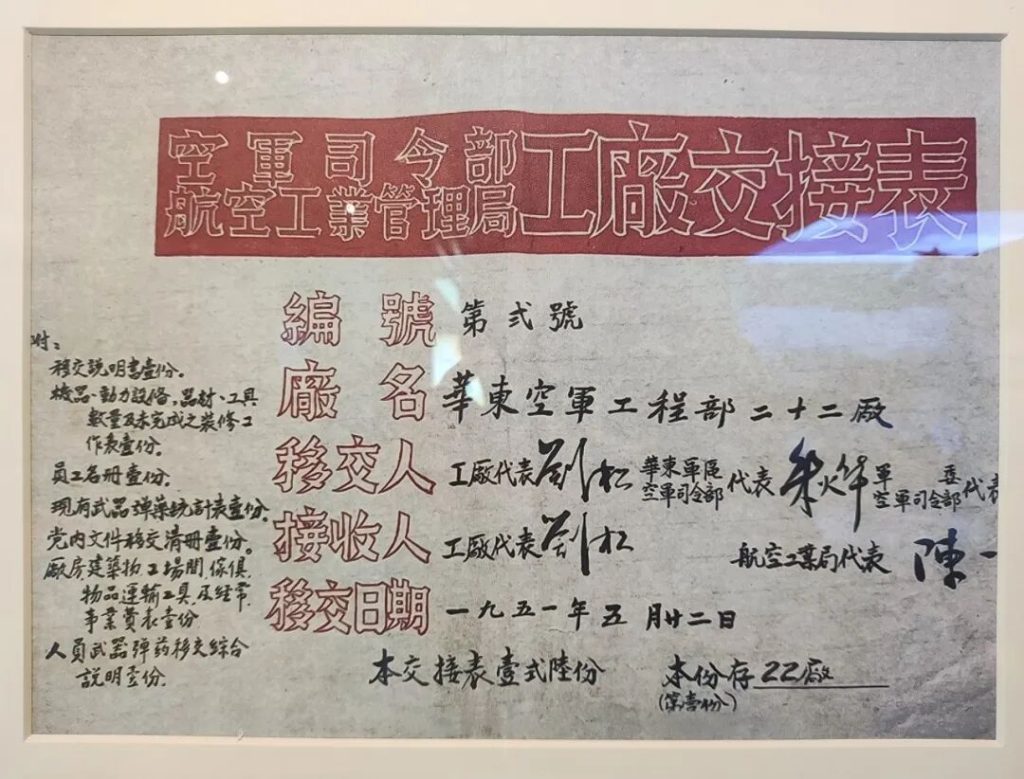 空軍司令部
航空工業管理局
工廠交接表
編號 第弍號
廠名 華東空軍工程部二十二廠
移交人 工廠代表劉松 華東軍區空軍司令部代表 軍委空軍司令部代表
接收人 工廠代表劉松 航空工業局代表 陳一
移交日期 一九五一年五月廿二日
本交接表壹式陸份 本份存22廠
(第壹份)
附:
移交説明書壹份。
機器、動力設俻、器材、工具
數量及未完成之裝修工
作表壹份。
員工名册壹份。
現有武器彈藥統計表壹份。
党内文件移交清册壹份。
廠房建築物工場間傢俱,
物品運輸工具及經常
事業費表壹份
人員武器弹药移交綜合
説明壹份.